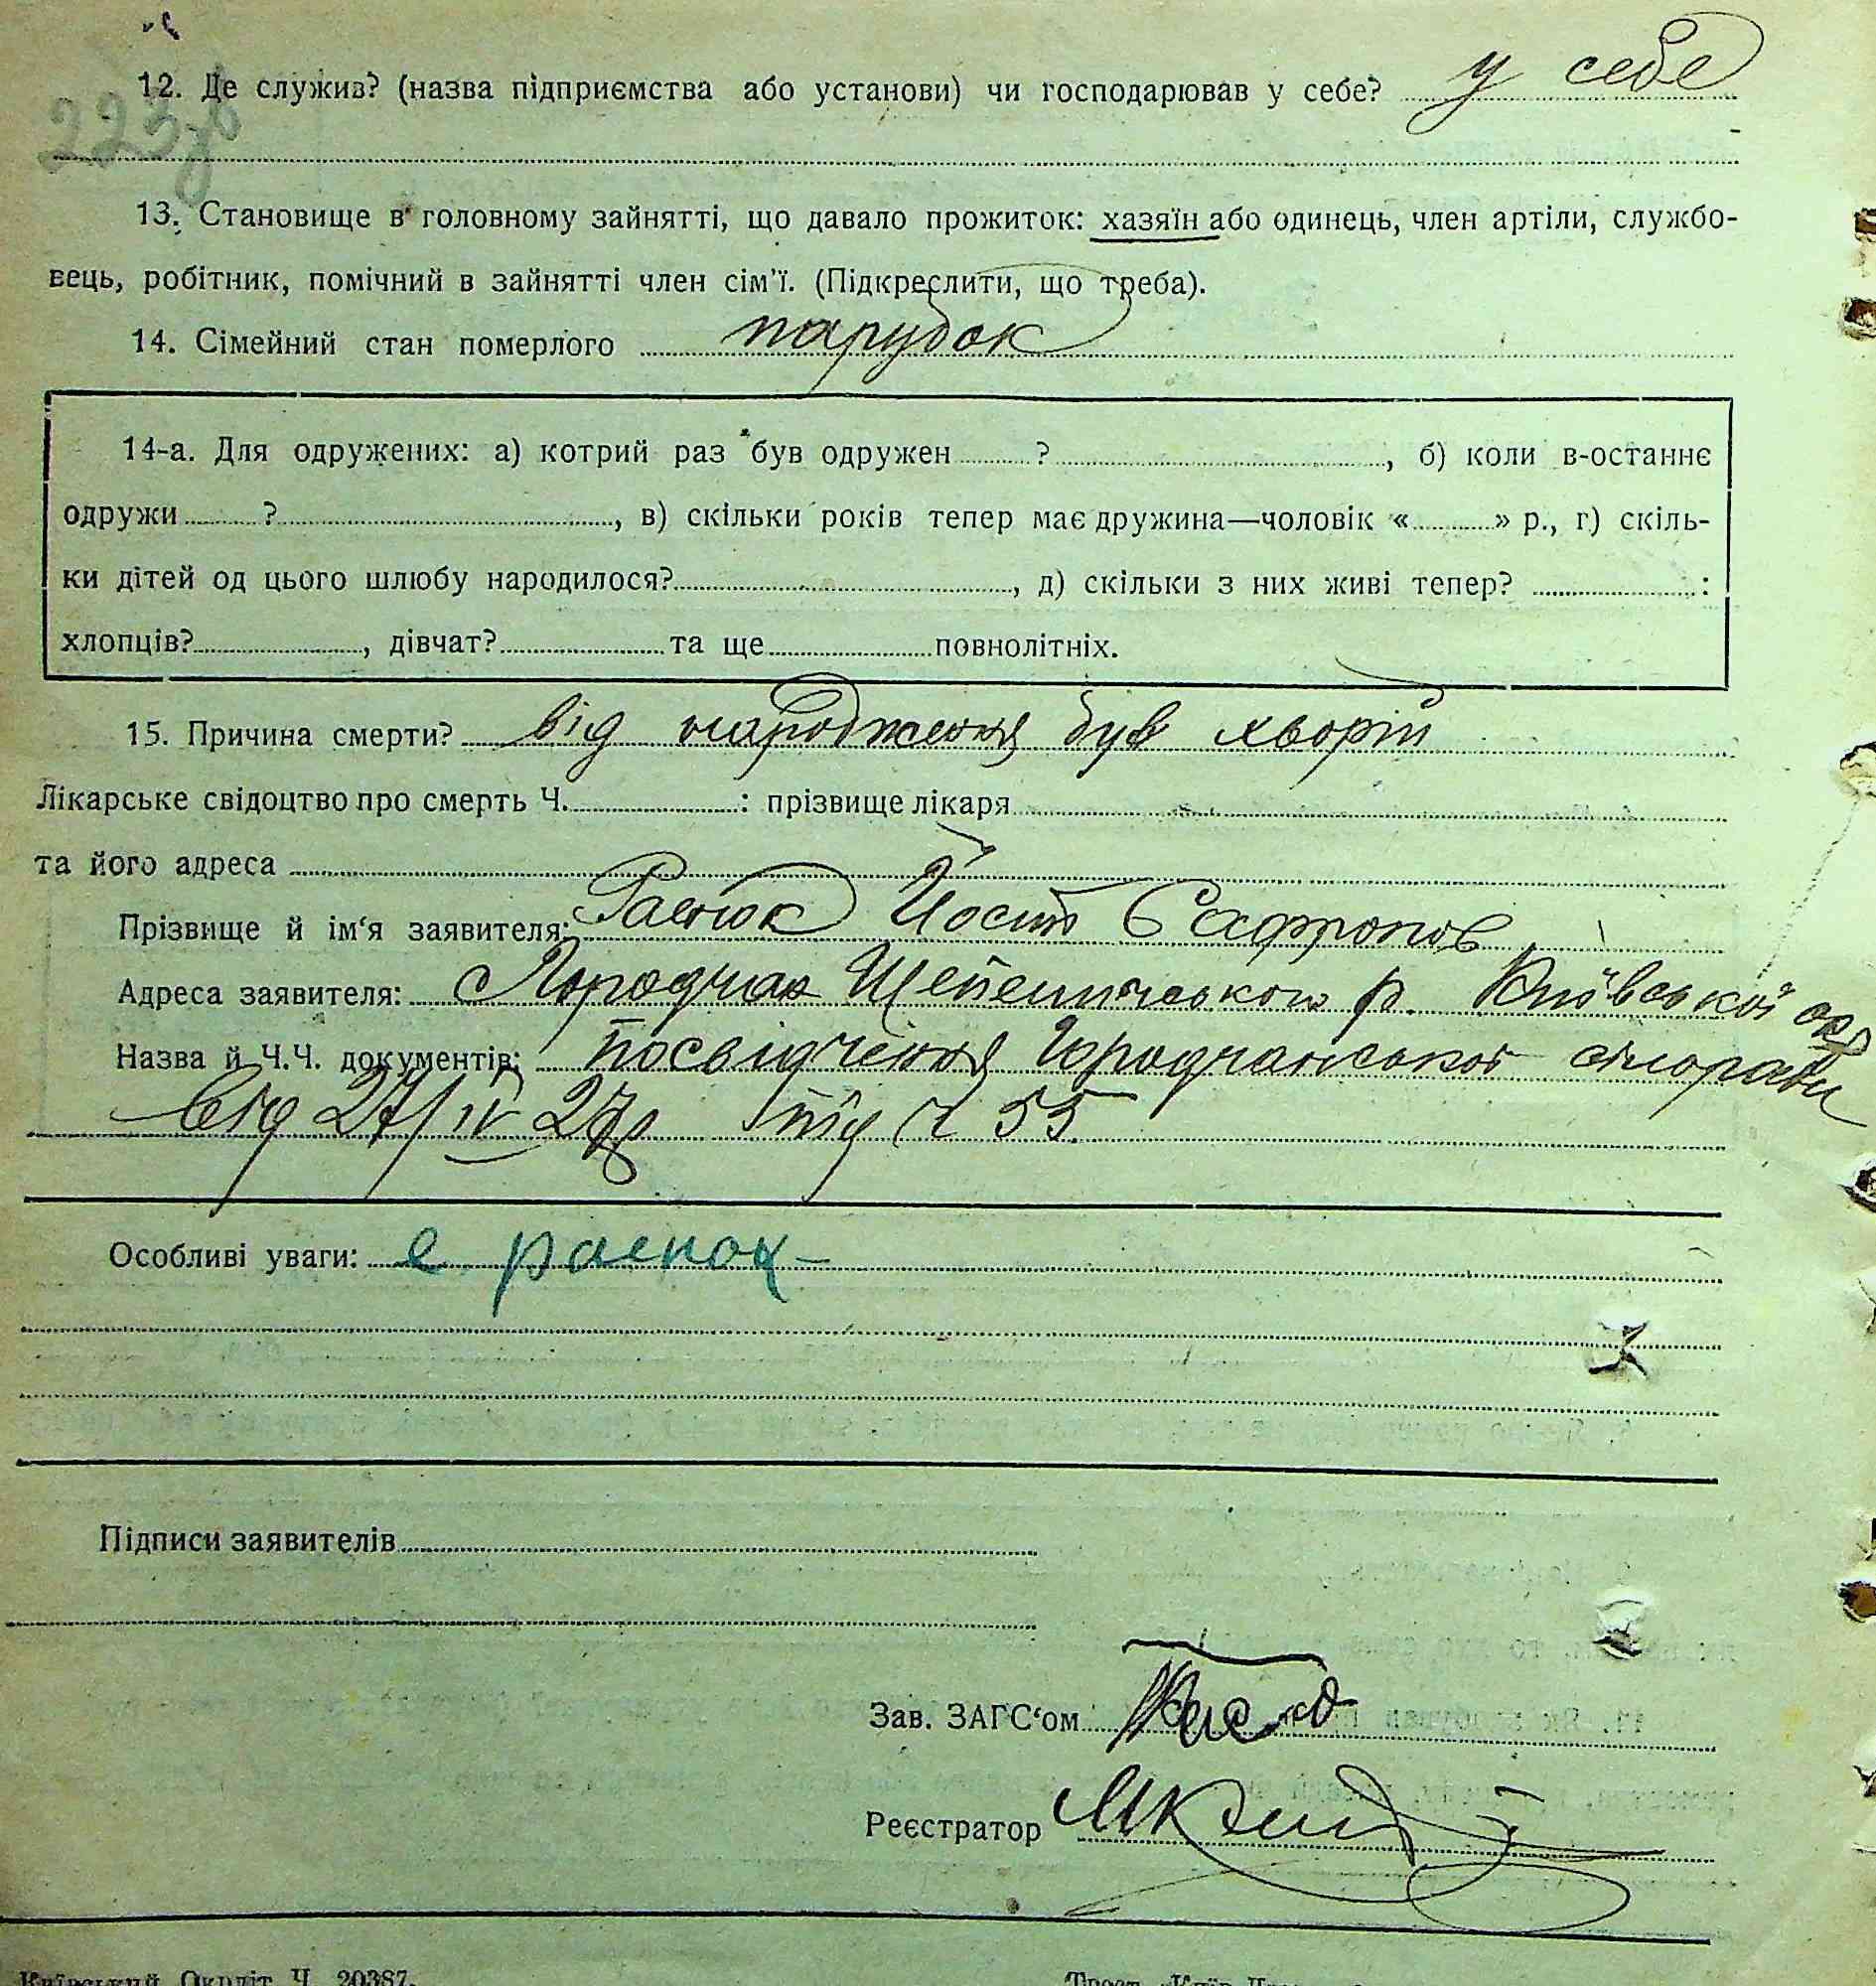 223зв
12. Де служив? (назва підприємства або установи) чи господарював у себе? у себе
13. Становище в головному зайнятті, що давало прожиток: хазяїн або одинець, член артіли, службо-
вець, робітник, помічний в зайнятті член сім'ї. (Підкреслити, що треба).
14. Сімейний стан померлого парубок
14-а. Для одружених: а) котрий раз був одружен ?, б) коли в-останнє
одружи ?, в) скільки років тепер має дружина—чоловік « » р., г) скіль-
ки дітей од цього шлюбу народилося?, д) скільки з них живі тепер? :
хлопців?, дівчат? та ще повнолітніх.
15. Причина смерти? від народження був хворій
Лікарське свідоцтво про смерть Ч. : прізвище лікаря
та його адреса
Прізвище й ім'я заявителя:
Адреса заявителя: с р. Київської окр
Назва й Ч.Ч. документів: посвідчення Городчанської сілоради
від 27/IV 27р під ч 55
Особливі уваги: є
Підписи заявителів
Зав. ЗАГС'ом
Реєстратор
Київський Окрліт Ч. 20387.